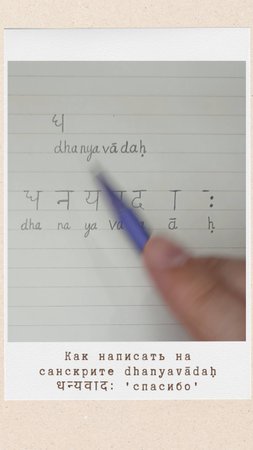 ध
dhanyavādaḥ
ध न य द ा :
dha na ya vā ā ḥ
Как написать на
санскрите dhanyavādaḥ
धन्यवाद: 'спасибо'